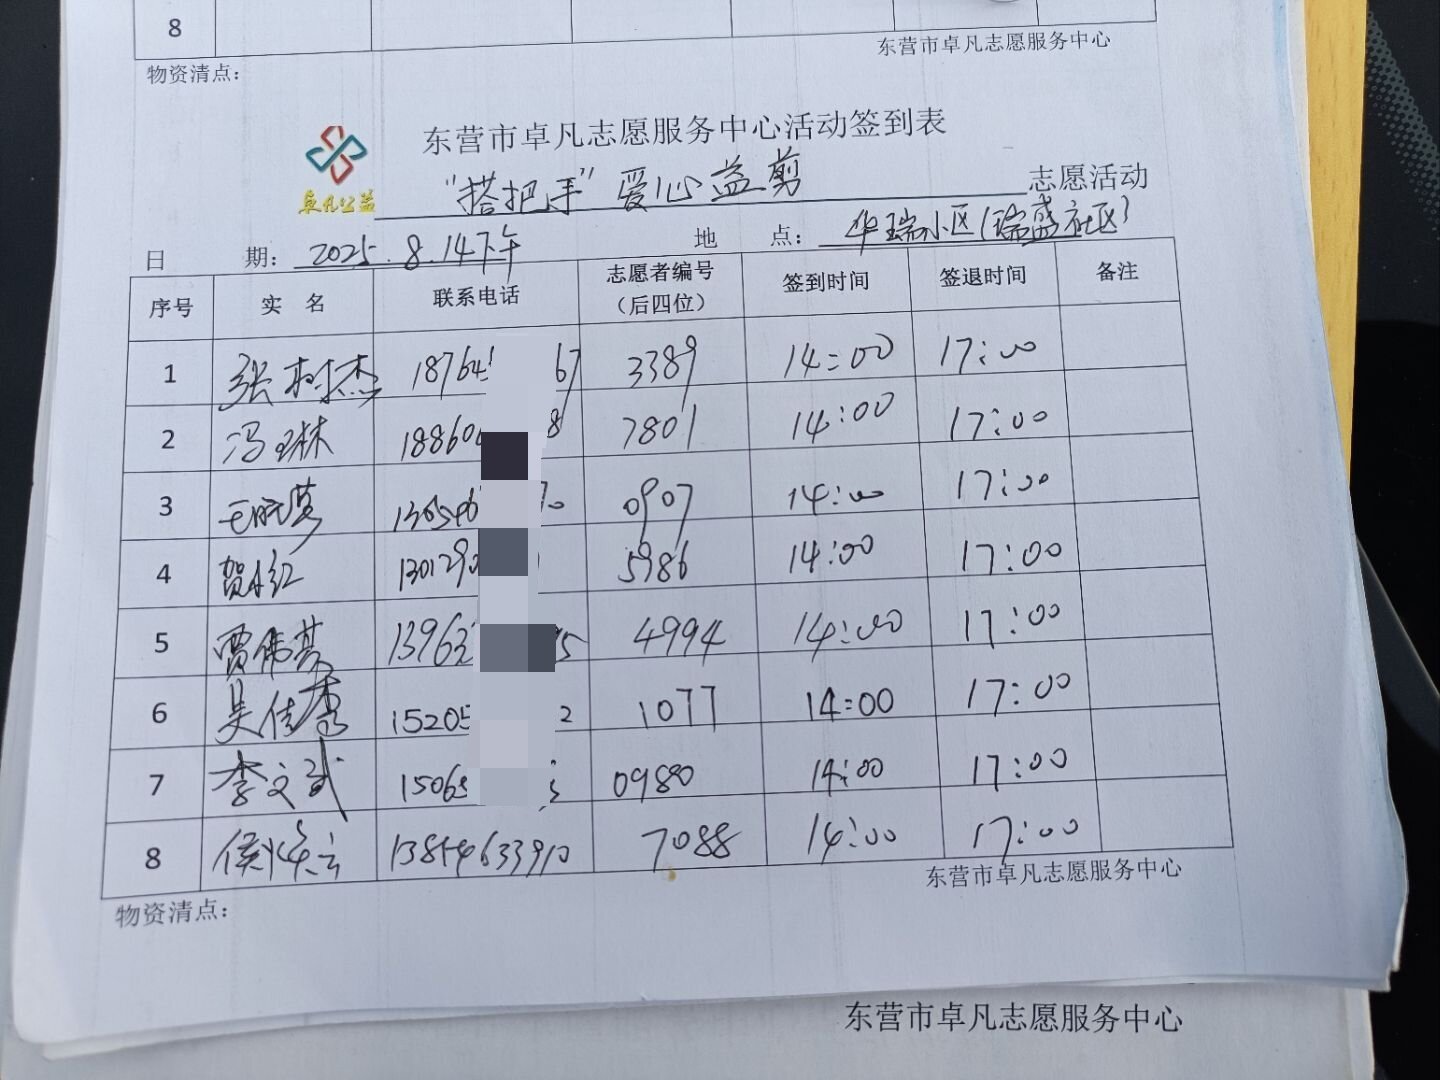 8
东营市卓凡志愿服务中心
物资清点：
东营市卓凡志愿服务中心活动签到表
卓凡公益 "搭把手"爱心益剪 志愿活动
日 期：2025.8.14下午 地 点：华瑞小区(瑞盛社区)
序号 实 名 联系电话 志愿者编号（后四位） 签到时间 签退时间 备注
1 张树杰 18764 67 3389 14:00 17:00
2 冯琳 18860 8 7801 14:00 17:00
3 1365466 70 0907 14:00 17:00
4 贺小红 1301290 5986 14:00 17:00
5 贾伟 1396 5 4994 14:00 17:00
6 吴佳 15205 2 1077 14:00 17:00
7 李文武 15065 09880 14:00 17:00
8 侯 云 13854633910 7088 14:00 17:00
东营市卓凡志愿服务中心
物资清点：
东营市卓凡志愿服务中心